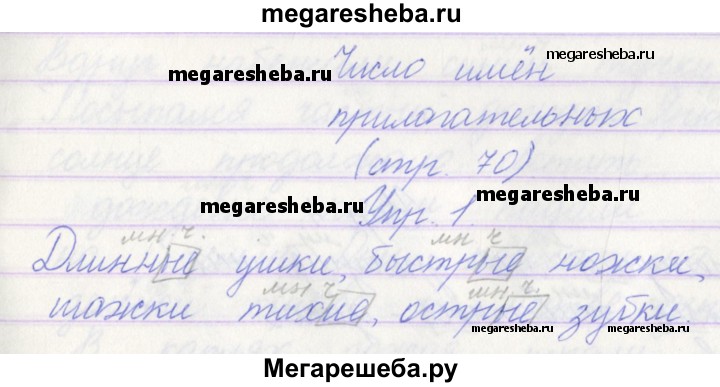 megaresheba.ru
Число имён
megaresheba.ru megaresheba.ru
прилагательных
(стр. 70)
megaresheba.ru Упр. 1 megaresheba.ru
мн. ч. мн ч
Длинные ушки, быстрые ножки,
мн ч мн. ч.
шажки тихие, острые зубки.
megaresheba.ru megaresheba.ru
Мегарешеба.ру